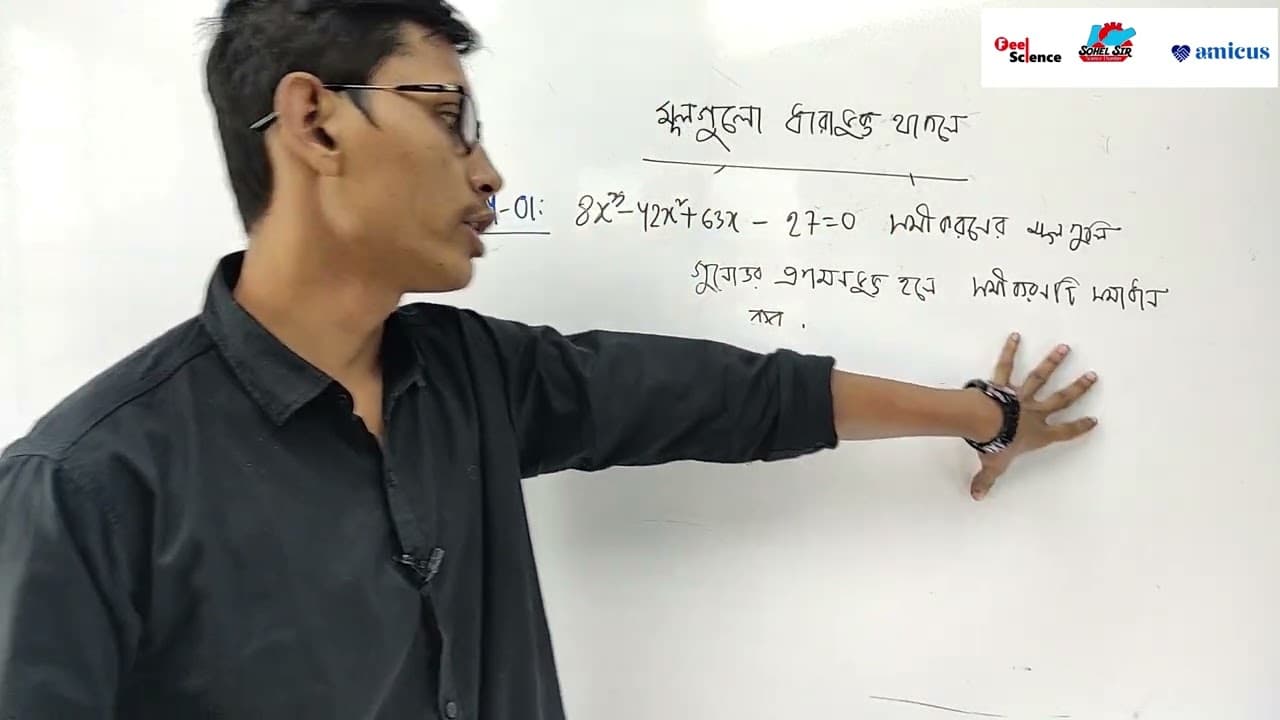 Feel Science
SOHEL SIR
Science Chamber
amicus
মূলগুলো ধারাভুক্ত থাকলে
-01: 8x³-42x²+63x - 27=0 সমীকরণের মূলগুলি
গুনোত্তর প্রগমনভুক্ত হলে সমীকরণটি সমাধান
কর.